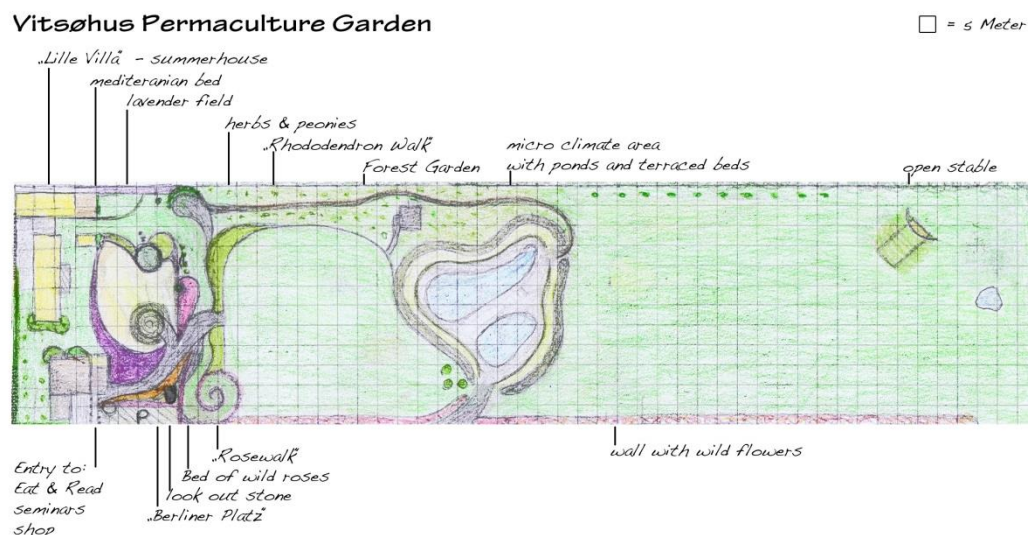 Vitsøhus Permaculture Garden
= 5 Meter
„Lille Villa“ - summerhouse
mediteranian bed
lavender field
herbs & peonies
„Rhododendron Walk“
Forest Garden
micro climate area
with ponds and terraced beds
open stable
P
Entry to:
Eat & Read
seminars
shop
„Rosewalk“
Bed of wild roses
look out stone
„Berliner Platz“
wall with wild flowers